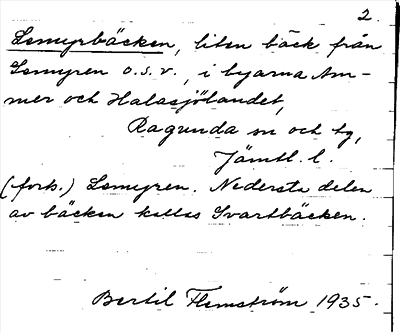 2.
Lomyrbäcken, liten bäck från
Lomyren o.s.v., i byarna Am-
mer och Halasjölandet,
Ragunda sn och tg,
Jämtl. l.
(forts.) Lomyren. Nedersta delen
av bäcken kallas Svartbäcken.
Bertil Flemström 1935.